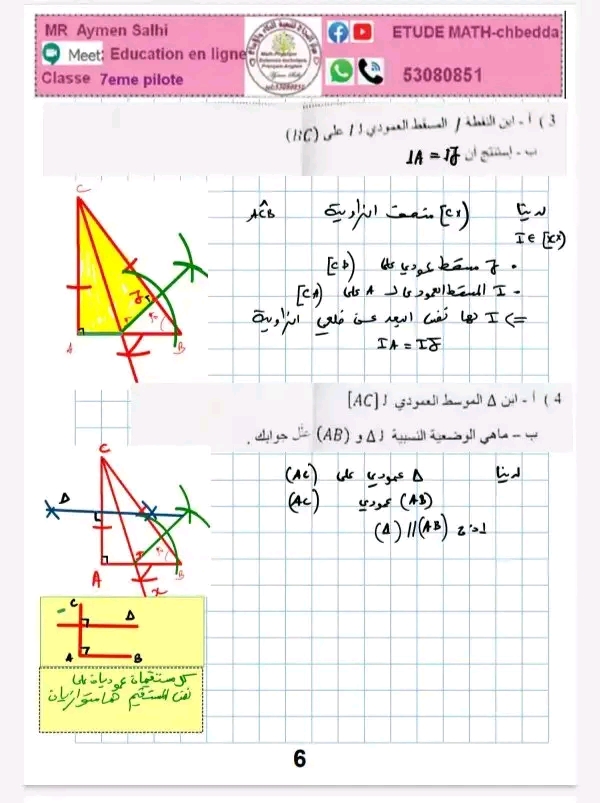 MR Aymen Salhi
Meet: Education en ligne
Classe 7eme pilote
ETUDE MATH-chbedda
53080851
3 ) أ - ابن النقطة J المسقط العمودي لـ I على (BC)
ب - إستنتج أن IA = IJ
لدينا [Cx) منصف الزاوية AĈB
I ∈ [Cx)
• J مسقط عمودي على [CB)
• I المسقط العمودي لـ A على [CA)
=> I لها نفس البعد عن ضلعي الزاوية
IA = IJ
C
J
A
B
4 ) أ - ابن Δ الموسط العمودي لـ [AC]
ب - ماهي الوضعية النسبية لـ Δ و (AB) علّل جوابك .
لدينا Δ عمودي على (AC)
(AB) عمودي (AC)
إذن (AB) // (Δ)
C
Δ
A
x
B
C
Δ
A
B
كل مستقيمان عموديان على
نفس المستقيم هما متوازيان
6